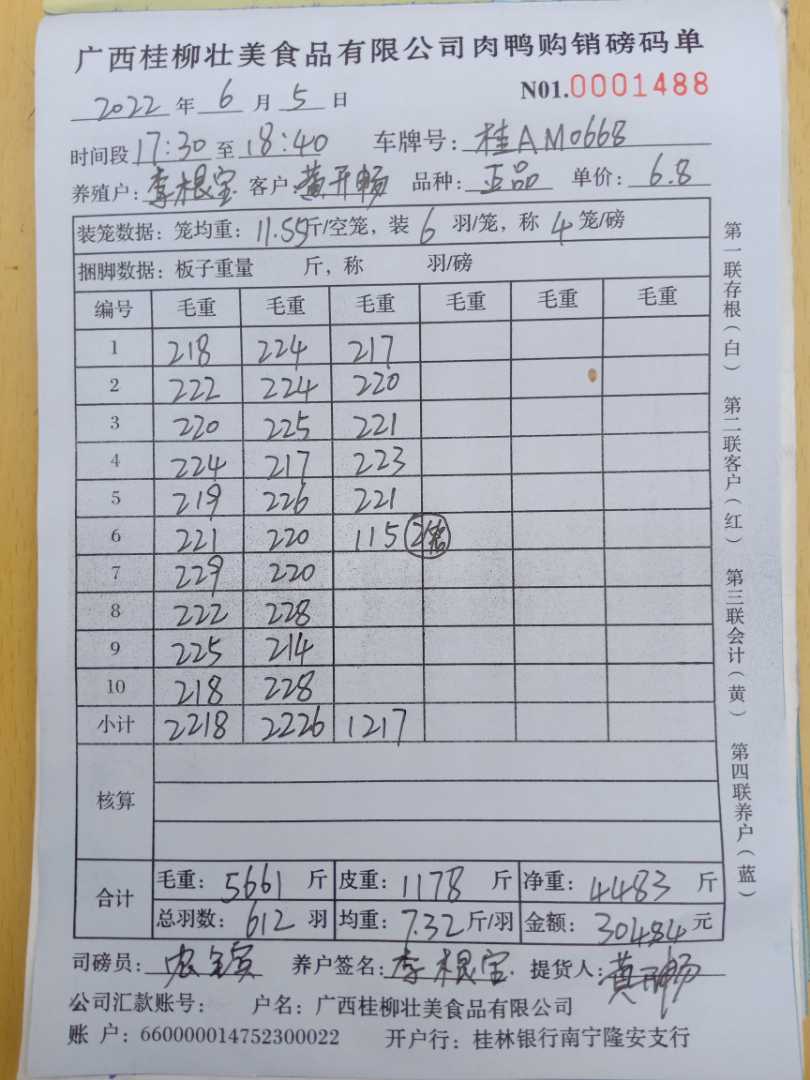 广西桂柳壮美食品有限公司肉鸭购销磅码单
2022 年 6 月 5 日 N01.0001488
时间段 17:30 至 18:40 车牌号: 桂AM0668
养殖户: 李根宝 客户: 黄开畅 品种: 正品 单价: 6.8
装笼数据: 笼均重: 11.55斤/空笼, 装 6 羽/笼, 称 4 笼/磅
捆脚数据: 板子重量 斤, 称 羽/磅
编号 毛重 毛重 毛重 毛重 毛重 毛重
1 218 224 217
2 222 224 220
3 220 225 221
4 224 217 223
5 219 226 221
6 221 220 115
7 229 220
8 222 228
9 225 214
10 218 228
小计 2218 2226 1217
核算
合计
毛重: 5661 斤 皮重: 1178 斤 净重: 4483 斤
总羽数: 612 羽 均重: 7.32 斤/羽 金额: 30484 元
司磅员: 养户签名: 李根宝 提货人: 黄开畅
公司汇款账号: 户名: 广西桂柳壮美食品有限公司
账 户: 660000014752300022 开户行: 桂林银行南宁隆安支行
第一联存根(白) 第二联客户(红) 第三联会计(黄) 第四联养户(蓝)